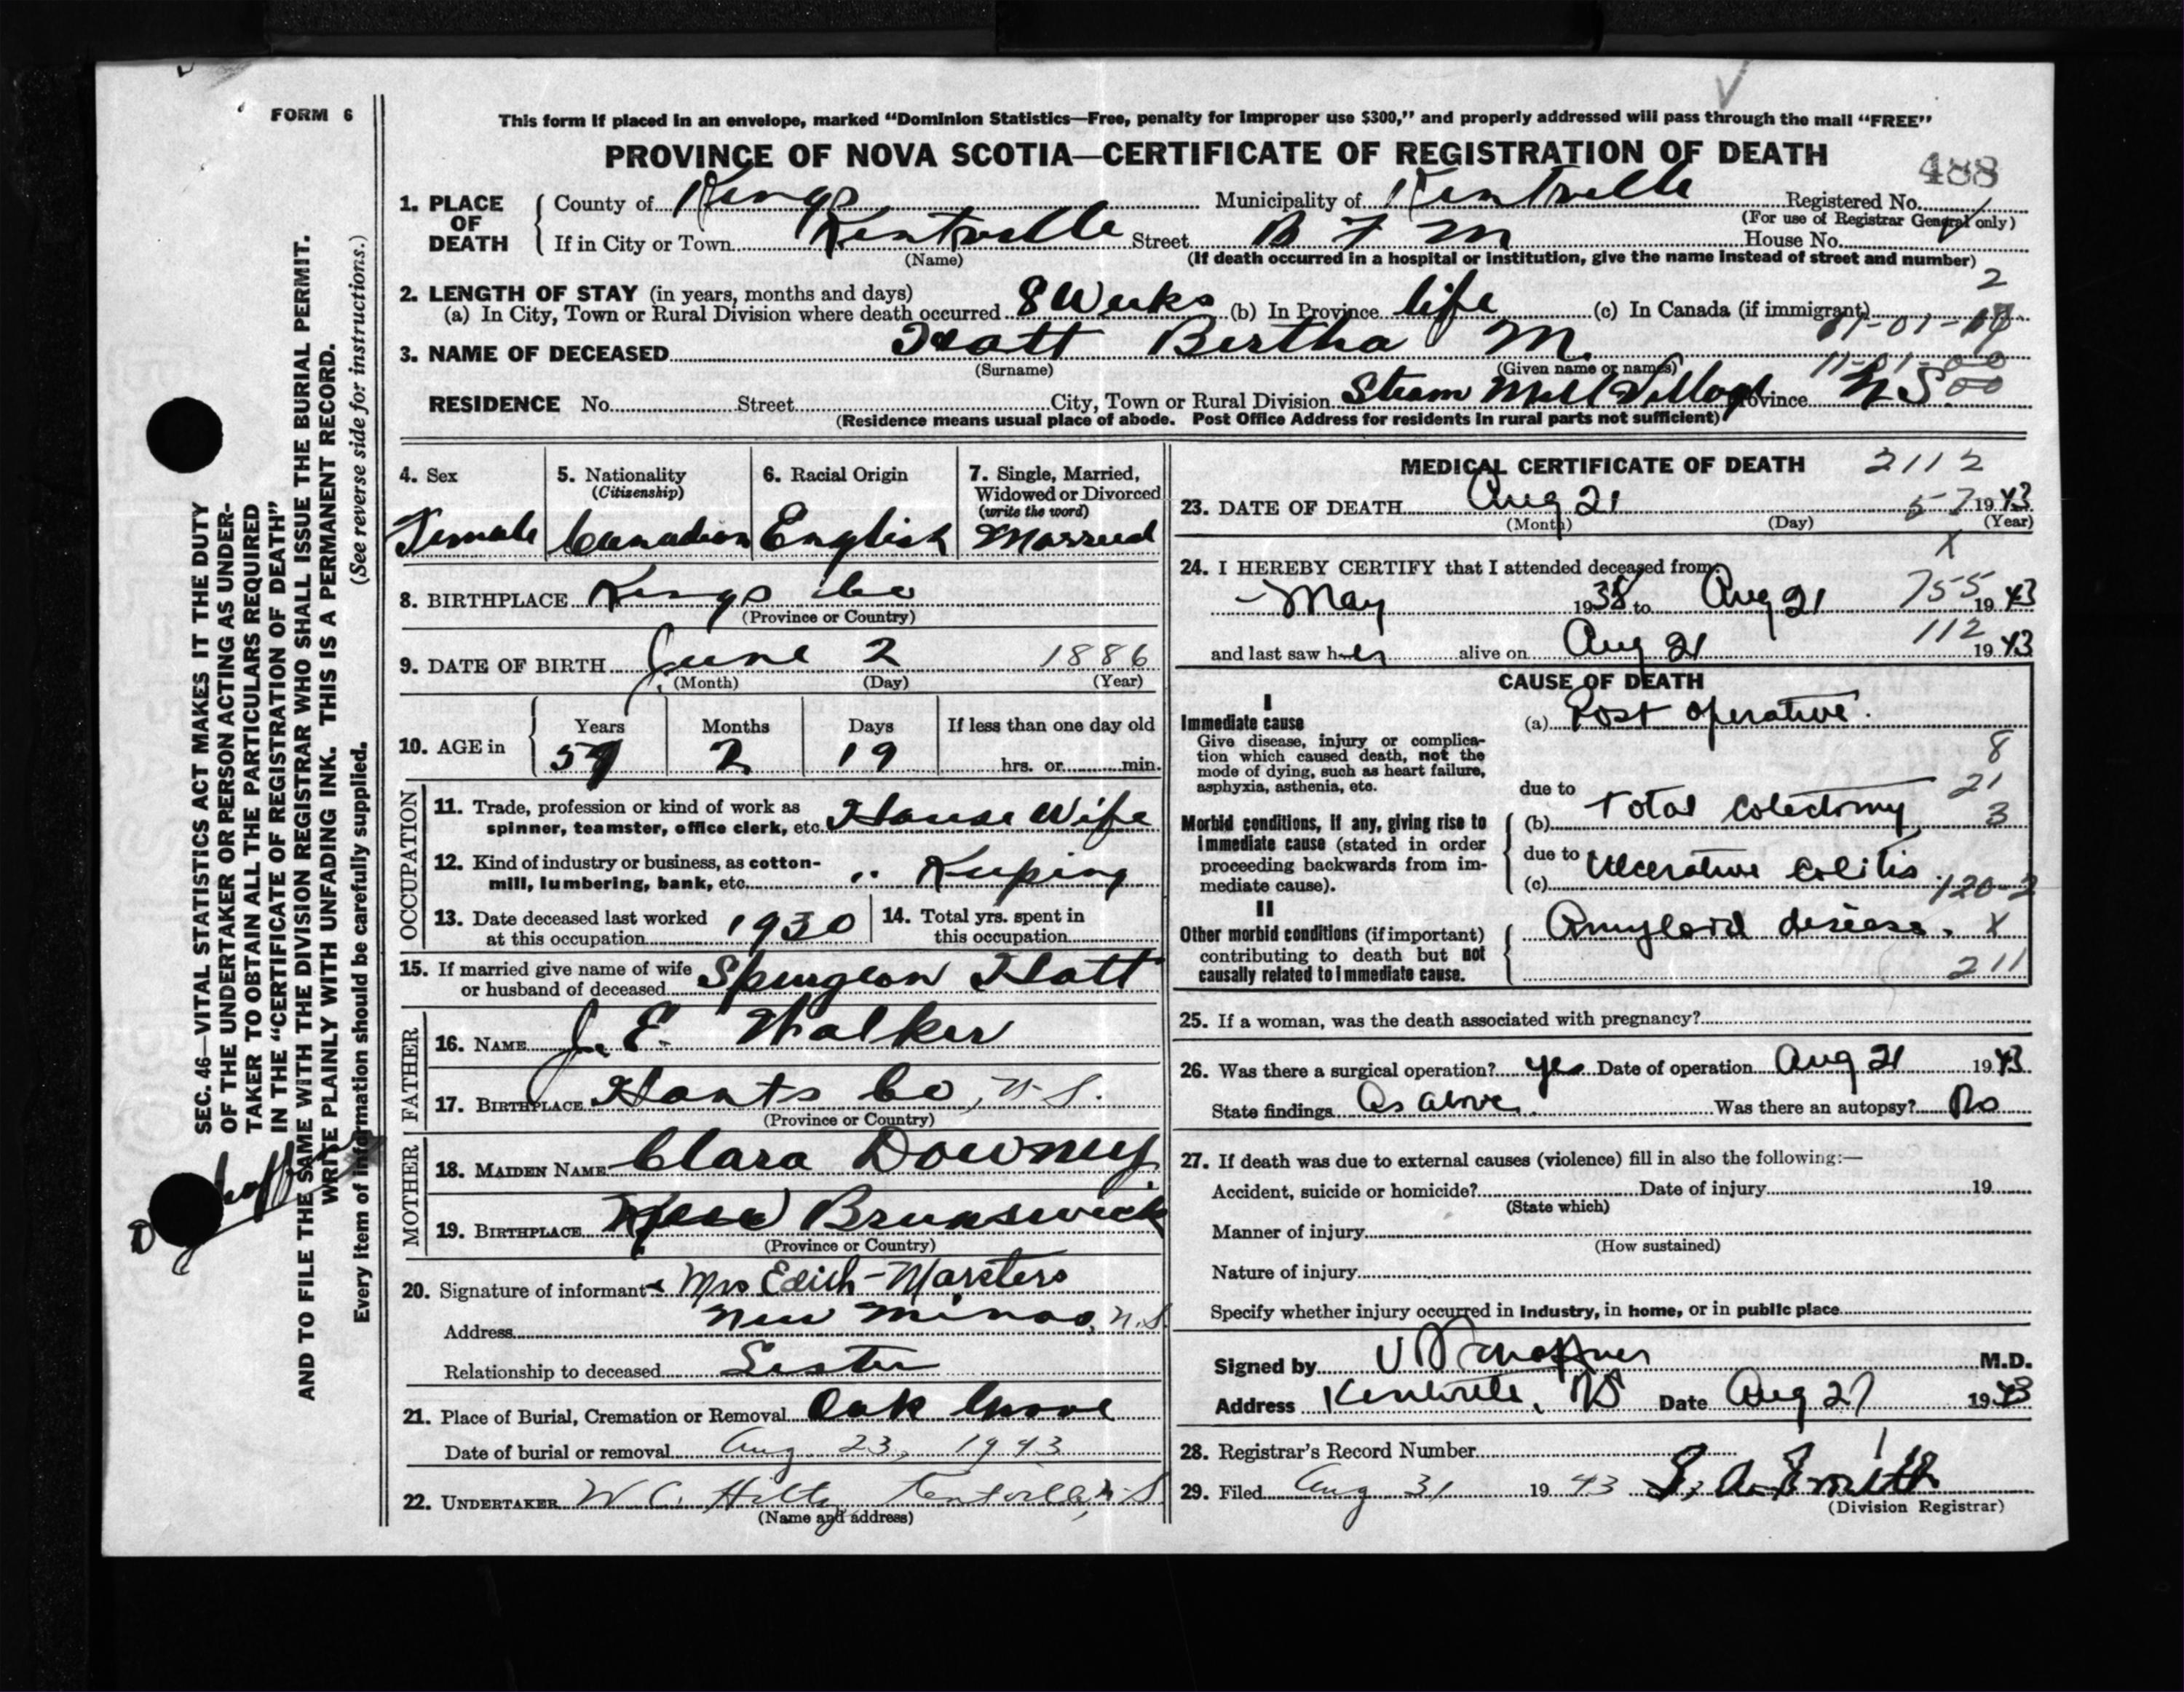 FORM 6
This form if placed in an envelope, marked “Dominion Statistics—Free, penalty for improper use $300,” and properly addressed will pass through the mail “FREE”
PROVINCE OF NOVA SCOTIA—CERTIFICATE OF REGISTRATION OF DEATH
488
1. PLACE OF DEATH
County of Kings Municipality of Kentville Registered No.
(For use of Registrar General only)
If in City or Town Kentville Street B F M House No.
(Name) (If death occurred in a hospital or institution, give the name instead of street and number)
2. LENGTH OF STAY (in years, months and days) 2
(a) In City, Town or Rural Division where death occurred 8 Weeks (b) In Province life (c) In Canada (if immigrant)
3. NAME OF DECEASED Hatt Bertha M.
(Surname) (Given name or names) 11-01-00
RESIDENCE No. Street City, Town or Rural Division Steam Mill Village Province N S 00
(Residence means usual place of abode. Post Office Address for residents in rural parts not sufficient)
4. Sex Female
5. Nationality (Citizenship) Canadian
6. Racial Origin English
7. Single, Married, Widowed or Divorced (write the word) Married
8. BIRTHPLACE Kings Co
(Province or Country)
9. DATE OF BIRTH June 2 1886
(Month) (Day) (Year)
10. AGE in Years 57 Months 2 Days 19 If less than one day old hrs. or min.
OCCUPATION
11. Trade, profession or kind of work as spinner, teamster, office clerk, etc. House Wife
12. Kind of industry or business, as cotton-mill, lumbering, bank, etc. " Keeping
13. Date deceased last worked at this occupation 1930
14. Total yrs. spent in this occupation
15. If married give name of wife or husband of deceased Spurgeon Hatt
FATHER
16. NAME J. E. Walker
17. BIRTHPLACE Hants Co, N.S.
(Province or Country)
MOTHER
18. MAIDEN NAME Clara Downey
19. BIRTHPLACE New Brunswick
(Province or Country)
20. Signature of informant Mrs Edith Marsters
Address New Minas, N.S.
Relationship to deceased Sister
21. Place of Burial, Cremation or Removal Oak Grove
Date of burial or removal Aug. 23, 1943
22. UNDERTAKER W C. Hiltz Kentville, N-S
(Name and address)
MEDICAL CERTIFICATE OF DEATH 2112
23. DATE OF DEATH Aug 21 57 1943
(Month) (Day) (Year)
X
24. I HEREBY CERTIFY that I attended deceased from:
May 1938 to Aug 21 755 1943
112
and last saw her alive on Aug 21 1943
CAUSE OF DEATH
I
Immediate cause (a) Post operative.
Give disease, injury or complication which caused death, not the mode of dying, such as heart failure, asphyxia, asthenia, etc.
8
due to 21
(b) Total Colectomy 3
Morbid conditions, if any, giving rise to immediate cause (stated in order proceeding backwards from immediate cause).
due to
(c) Ulcerative Colitis. 120-2
II
Other morbid conditions (if important) contributing to death but not causally related to immediate cause.
Amyloid disease. X
211
25. If a woman, was the death associated with pregnancy?
26. Was there a surgical operation? yes Date of operation Aug 21 1943
State findings As above. Was there an autopsy? No
27. If death was due to external causes (violence) fill in also the following:—
Accident, suicide or homicide? Date of injury 19
(State which)
Manner of injury
(How sustained)
Nature of injury
Specify whether injury occurred in industry, in home, or in public place
Signed by M.D.
Address Kentville, NS Date Aug 27 1943
28. Registrar's Record Number
29. Filed Aug 31 1943 Smith
(Division Registrar)
SEC. 46—VITAL STATISTICS ACT MAKES IT THE DUTY
OF THE UNDERTAKER OR PERSON ACTING AS UNDER-
TAKER TO OBTAIN ALL THE PARTICULARS REQUIRED
IN THE “CERTIFICATE OF REGISTRATION OF DEATH”
AND TO FILE THE SAME WITH THE DIVISION REGISTRAR WHO SHALL ISSUE THE BURIAL PERMIT.
WRITE PLAINLY WITH UNFADING INK. THIS IS A PERMANENT RECORD.
Every item of information should be carefully supplied. (See reverse side for instructions.)